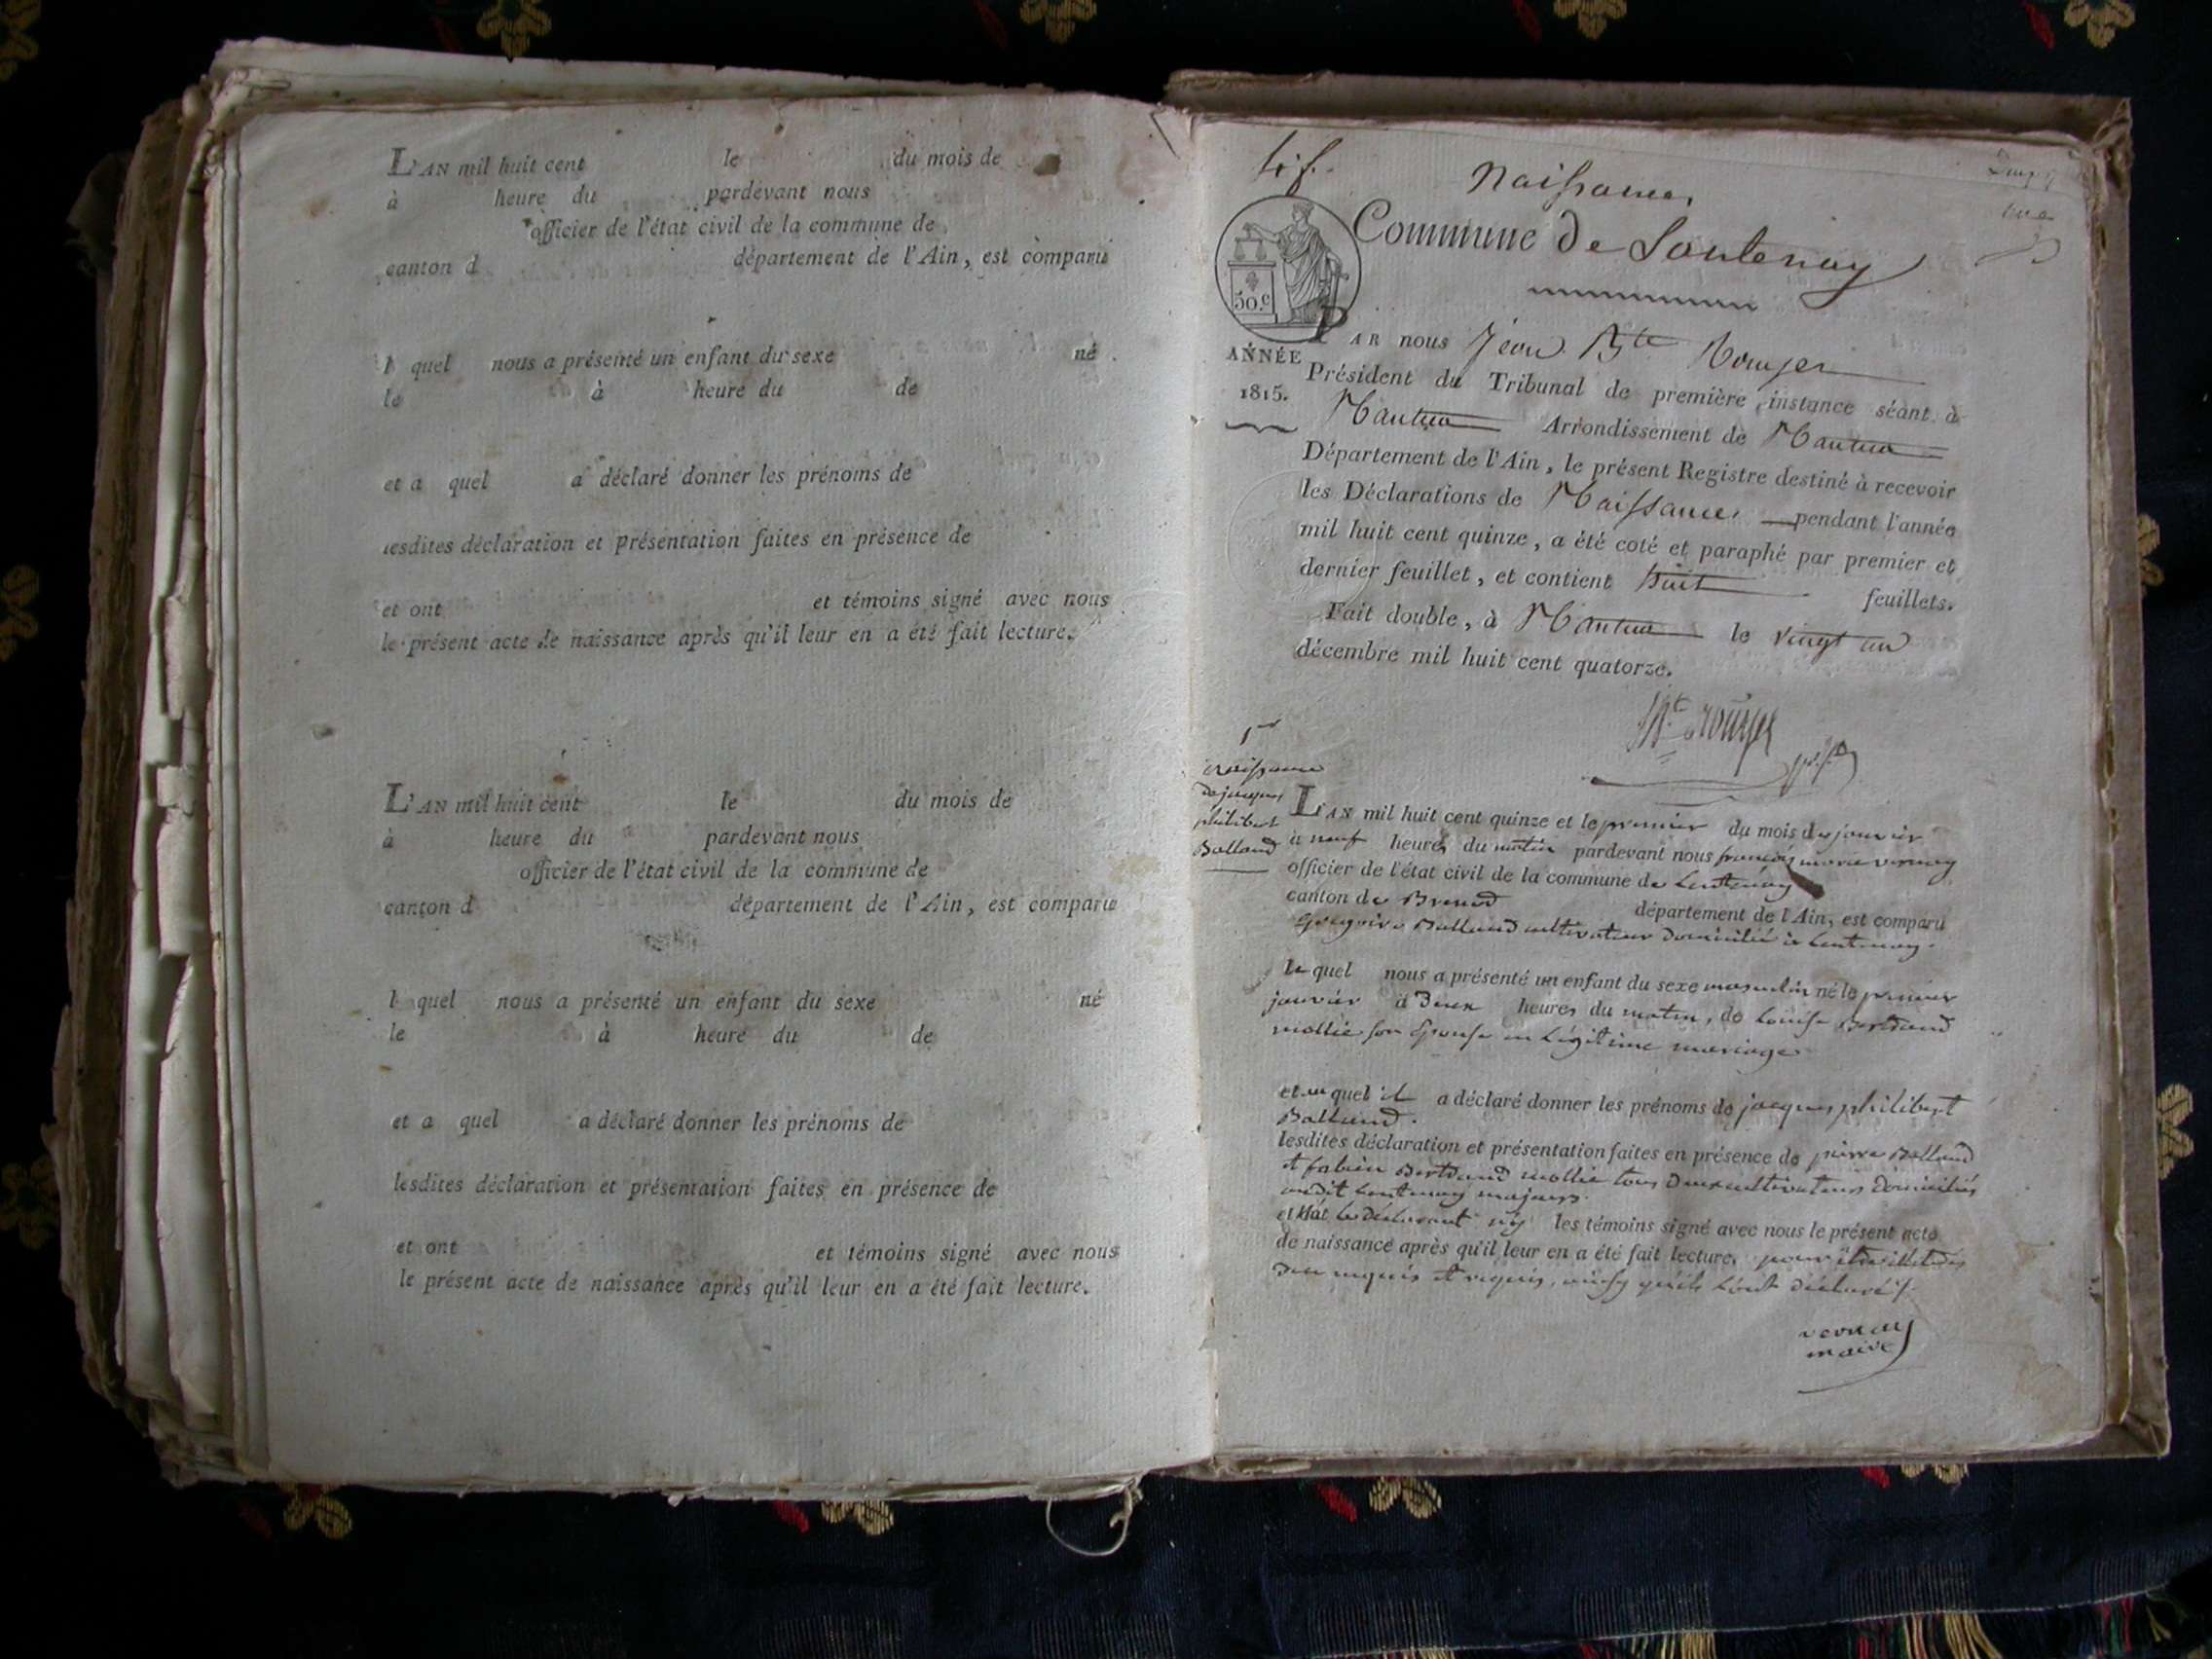 L'AN mil huit cent le du mois de
à heure du pardevant nous
officier de l'état civil de la commune de
canton d département de l'Ain, est comparu
l quel nous a présenté un enfant du sexe né
le à heure du de
et a quel a déclaré donner les prénoms de
lesdites déclaration et présentation faites en présence de
et ont et témoins signé avec nous
le présent acte de naissance après qu'il leur en a été fait lecture.
L'AN mil huit cent le du mois de
à heure du pardevant nous
officier de l'état civil de la commune de
canton d département de l'Ain, est comparu
l quel nous a présenté un enfant du sexe né
le à heure du de
et a quel a déclaré donner les prénoms de
lesdites déclaration et présentation faites en présence de
et ont et témoins signé avec nous
le présent acte de naissance après qu'il leur en a été fait lecture.
Naissances
Commune de Lantenay
50.c
ANNÉE
1815.
PAR nous Jean Bte Rouyer
Président du Tribunal de première instance séant à
Nantua Arrondissement de Nantua
Département de l'Ain, le présent Registre destiné à recevoir
les Déclarations de Naissances pendant l'année
mil huit cent quinze, a été coté et paraphé par premier et
dernier feuillet, et contient huit feuillets.
Fait double, à Nantua le vingt un
décembre mil huit cent quatorze.
Bte Rouyer
1er
naissance
de jacques
philibert
Balland
L'AN mil huit cent quinze et le premier du mois de janvier
à neuf heures du matin pardevant nous françois marie vernay
officier de l'état civil de la commune de Lantenay
canton de Brenod département de l'Ain, est comparu
Gregoire Balland cultivateur domicilié à Lantenay.
le quel nous a présenté un enfant du sexe masculin né le premier
janvier à Deux heures du matin, de Louise Bertrand
mollie son Epouse en Légitime mariage
et au quel il a déclaré donner les prénoms de jacques philibert
Balland.
lesdites déclaration et présentation faites en présence de pierre Balland
et fabien Bertrand mollie tous Deux cultivateurs Domiciliés
audit Lantenay majeurs.
et n'at le Déclarant ny les témoins signé avec nous le présent acte
de naissance après qu'il leur en a été fait lecture. pour être illitérés
De ce enquis et requis, ainsy qu'ils L'ont déclaré.
vernay
maire